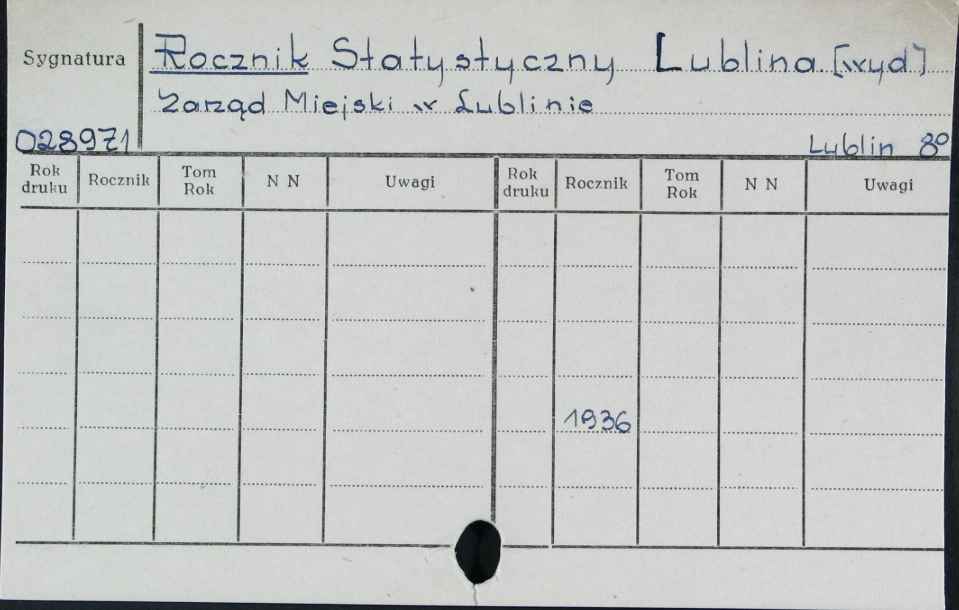 Sygnatura
Rocznik Statystyczny Lublina. [wyd]
Zarząd Miejski w Lublinie
028971
Lublin 8°
Rok druku Rocznik Tom Rok N N Uwagi Rok druku Rocznik Tom Rok N N Uwagi
1936